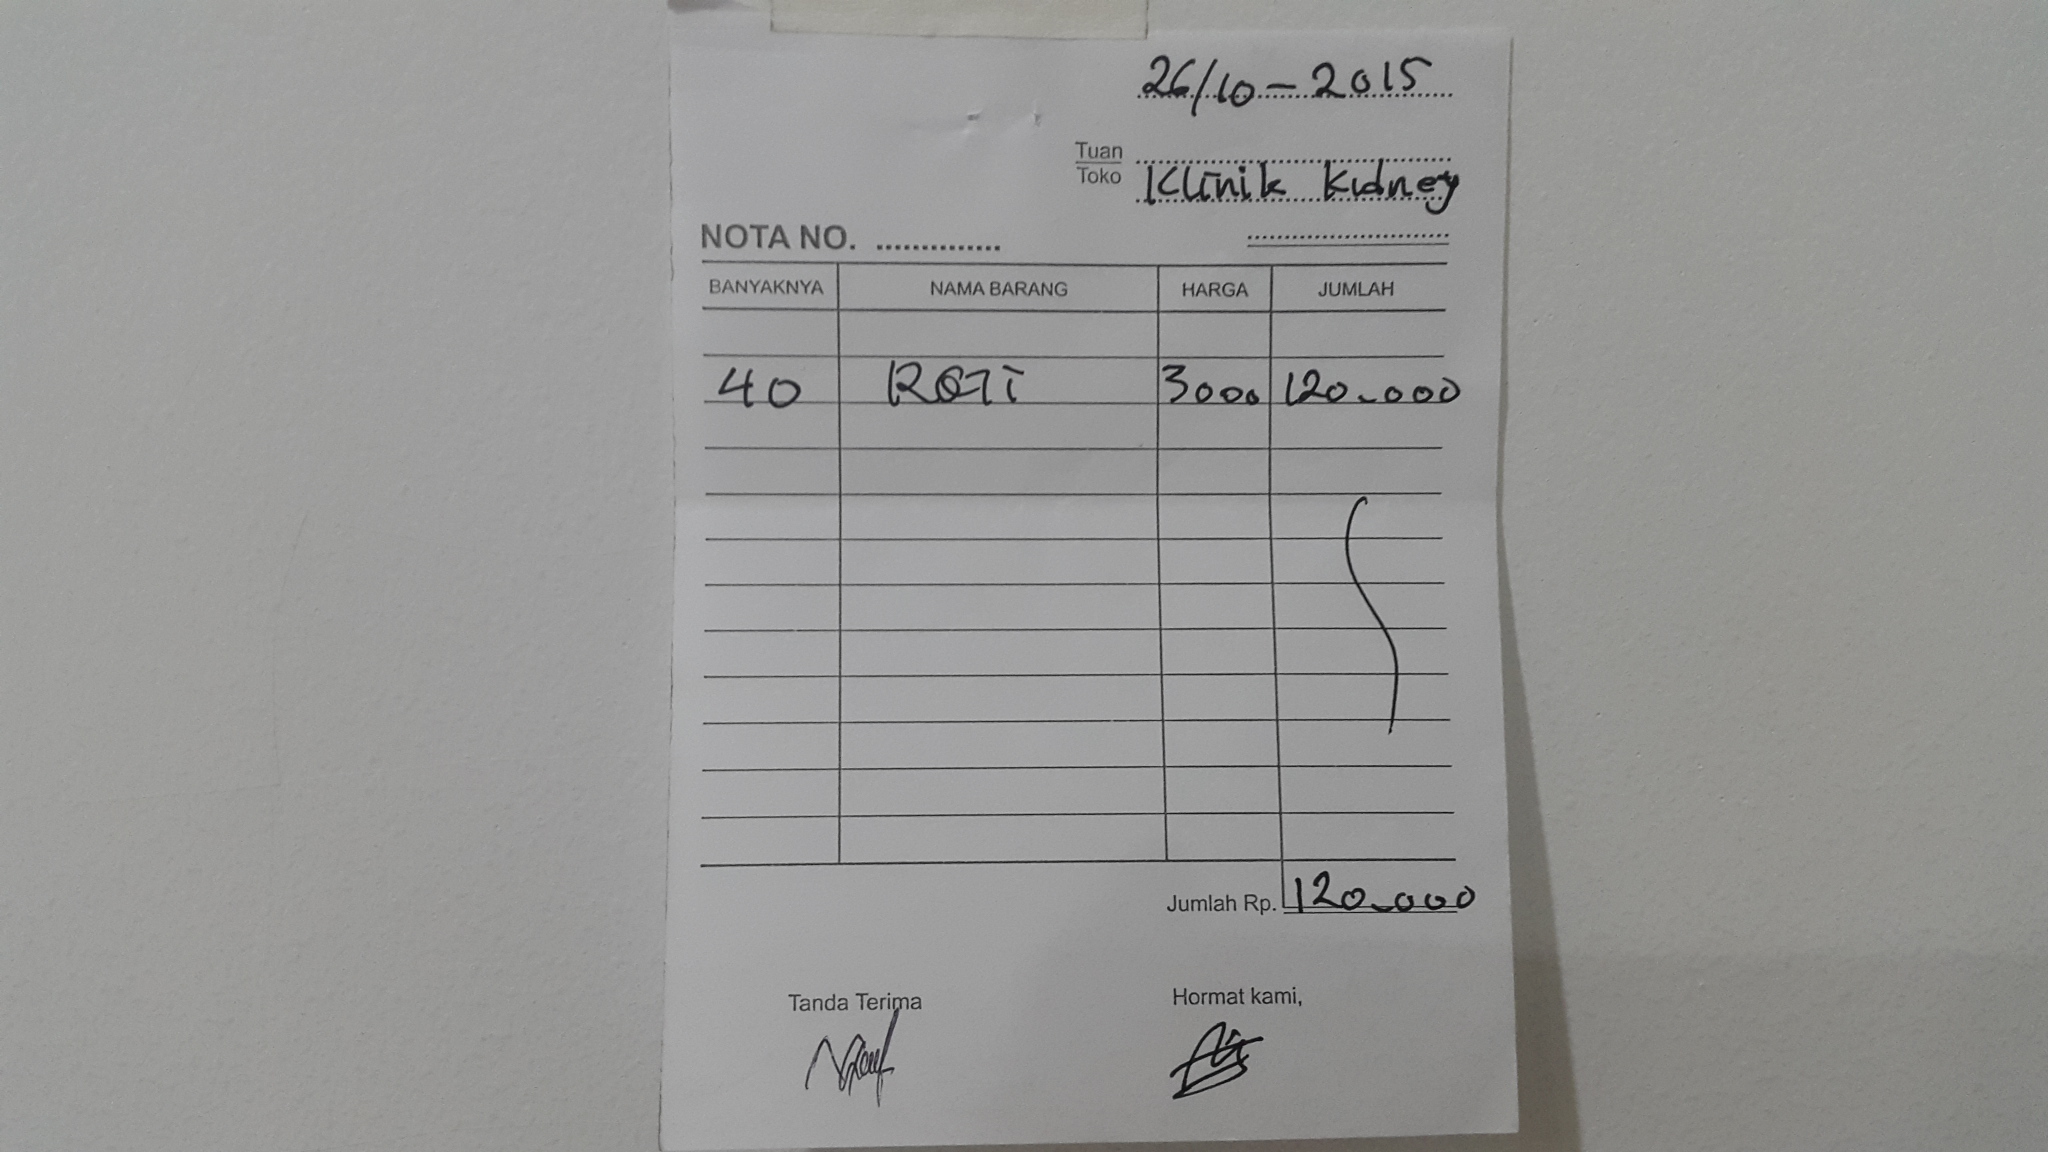 26/10-2015
Tuan
Toko Klinik Kidney
NOTA NO. ..............
BANYAKNYA NAMA BARANG HARGA JUMLAH
40 ROTI 3000 120.000
Jumlah Rp. 120.000
Tanda Terima Hormat kami,